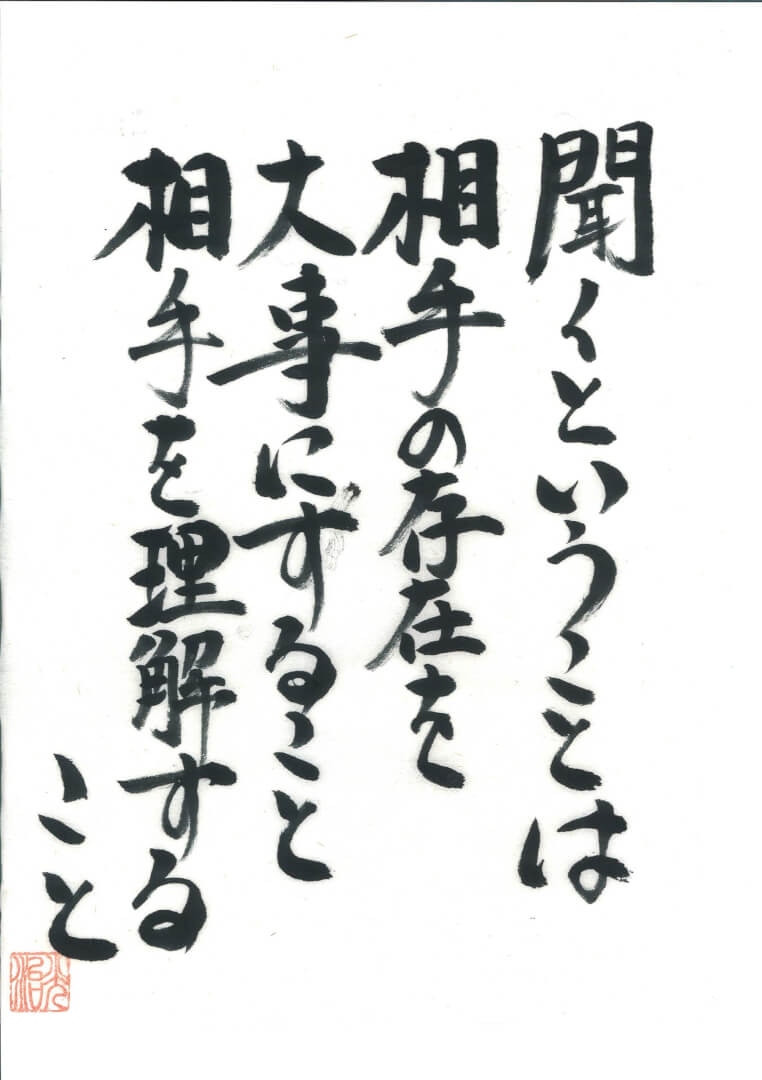 聞くということは
相手の存在を
大事にすること
相手を理解する
こと